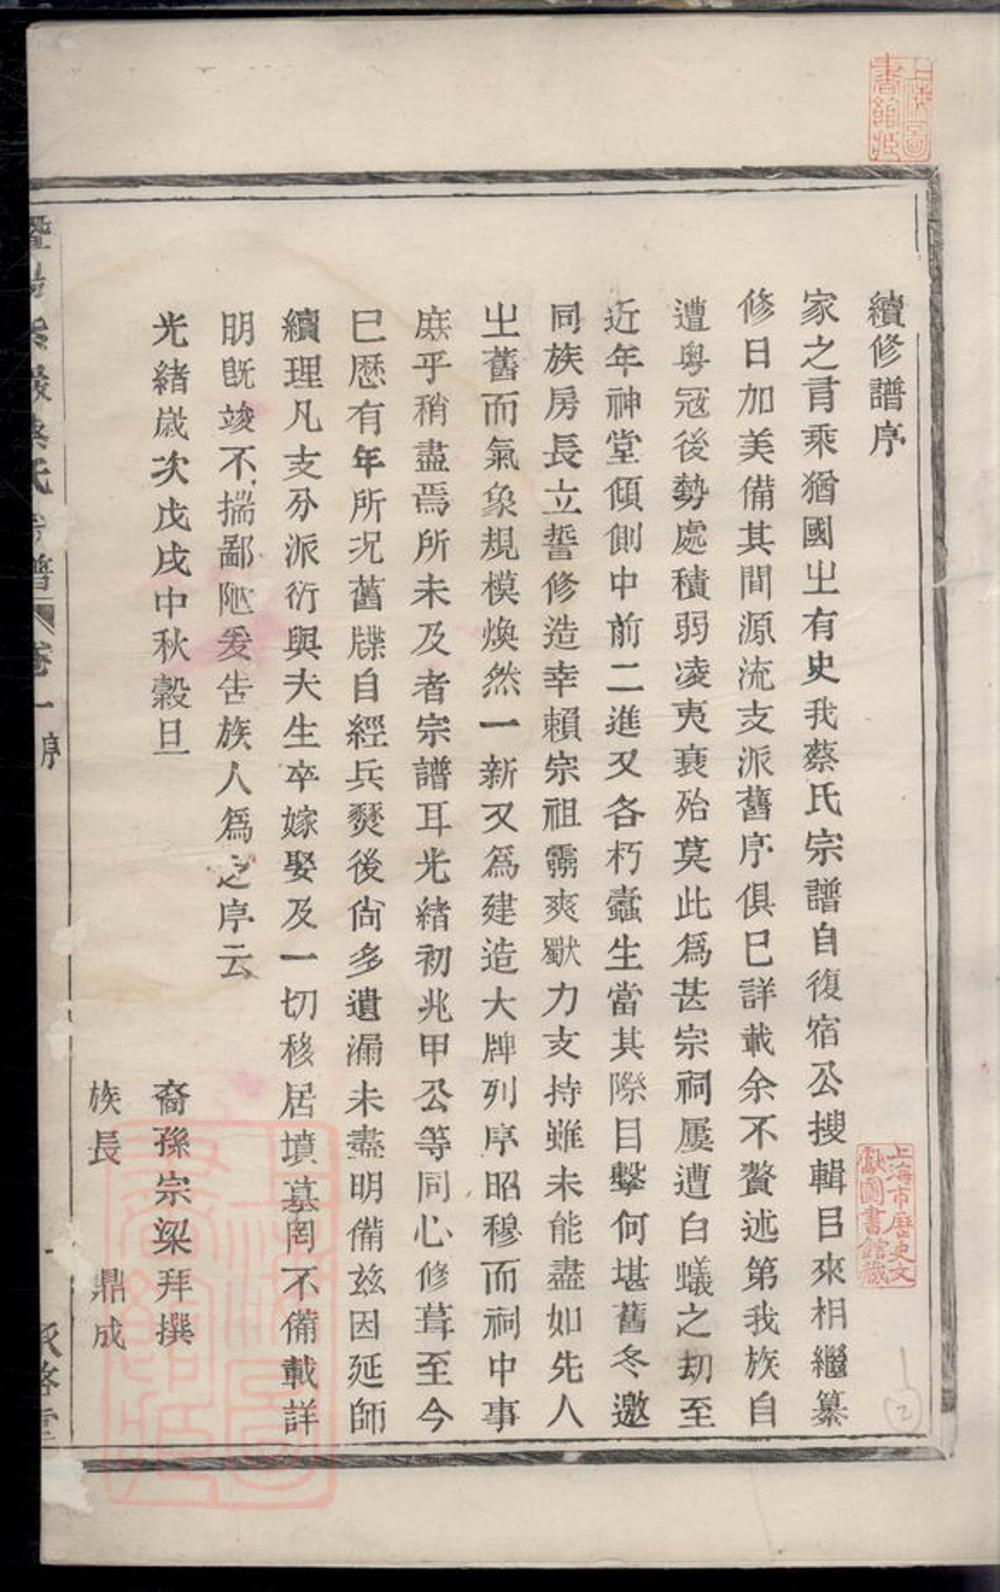 續修譜序
家之有乘猶國㞢有史我蔡氏宗譜自復宿公搜輯㠯來相繼纂
修日加美備其間源流支派舊序俱已詳載余不贅述第我族自
遭粵冦後勢處積弱凌夷衰殆莫此爲甚宗祠屢遭白蟻之刧至
近年神堂傾側中前二進又各朽蠹生當其際目擊何堪舊冬邀
同族房長立誓修造幸賴宗祖靈爽獸力支持雖未能盡如先人
㞢舊而氣象規模煥然一新又爲建造大牌列序昭穆而祠中事
庶乎稍盡焉所未及者宗譜耳光緒初兆甲公等同心修葺至今
已歷有年所况舊牒自經兵燹後尙多遺漏未盡明備茲因延師
續理凡支分派衍與夫生卒嫁娶及一切移居墳墓罔不備載詳
明旣竣不揣鄙陋爰告族人爲之序云
光緒歲次戊戌中秋穀旦
裔孫宗梁拜撰
族長 鼎成
氏 譜 卷一 序
上海圖書館藏
上海市歷史文獻圖書館藏